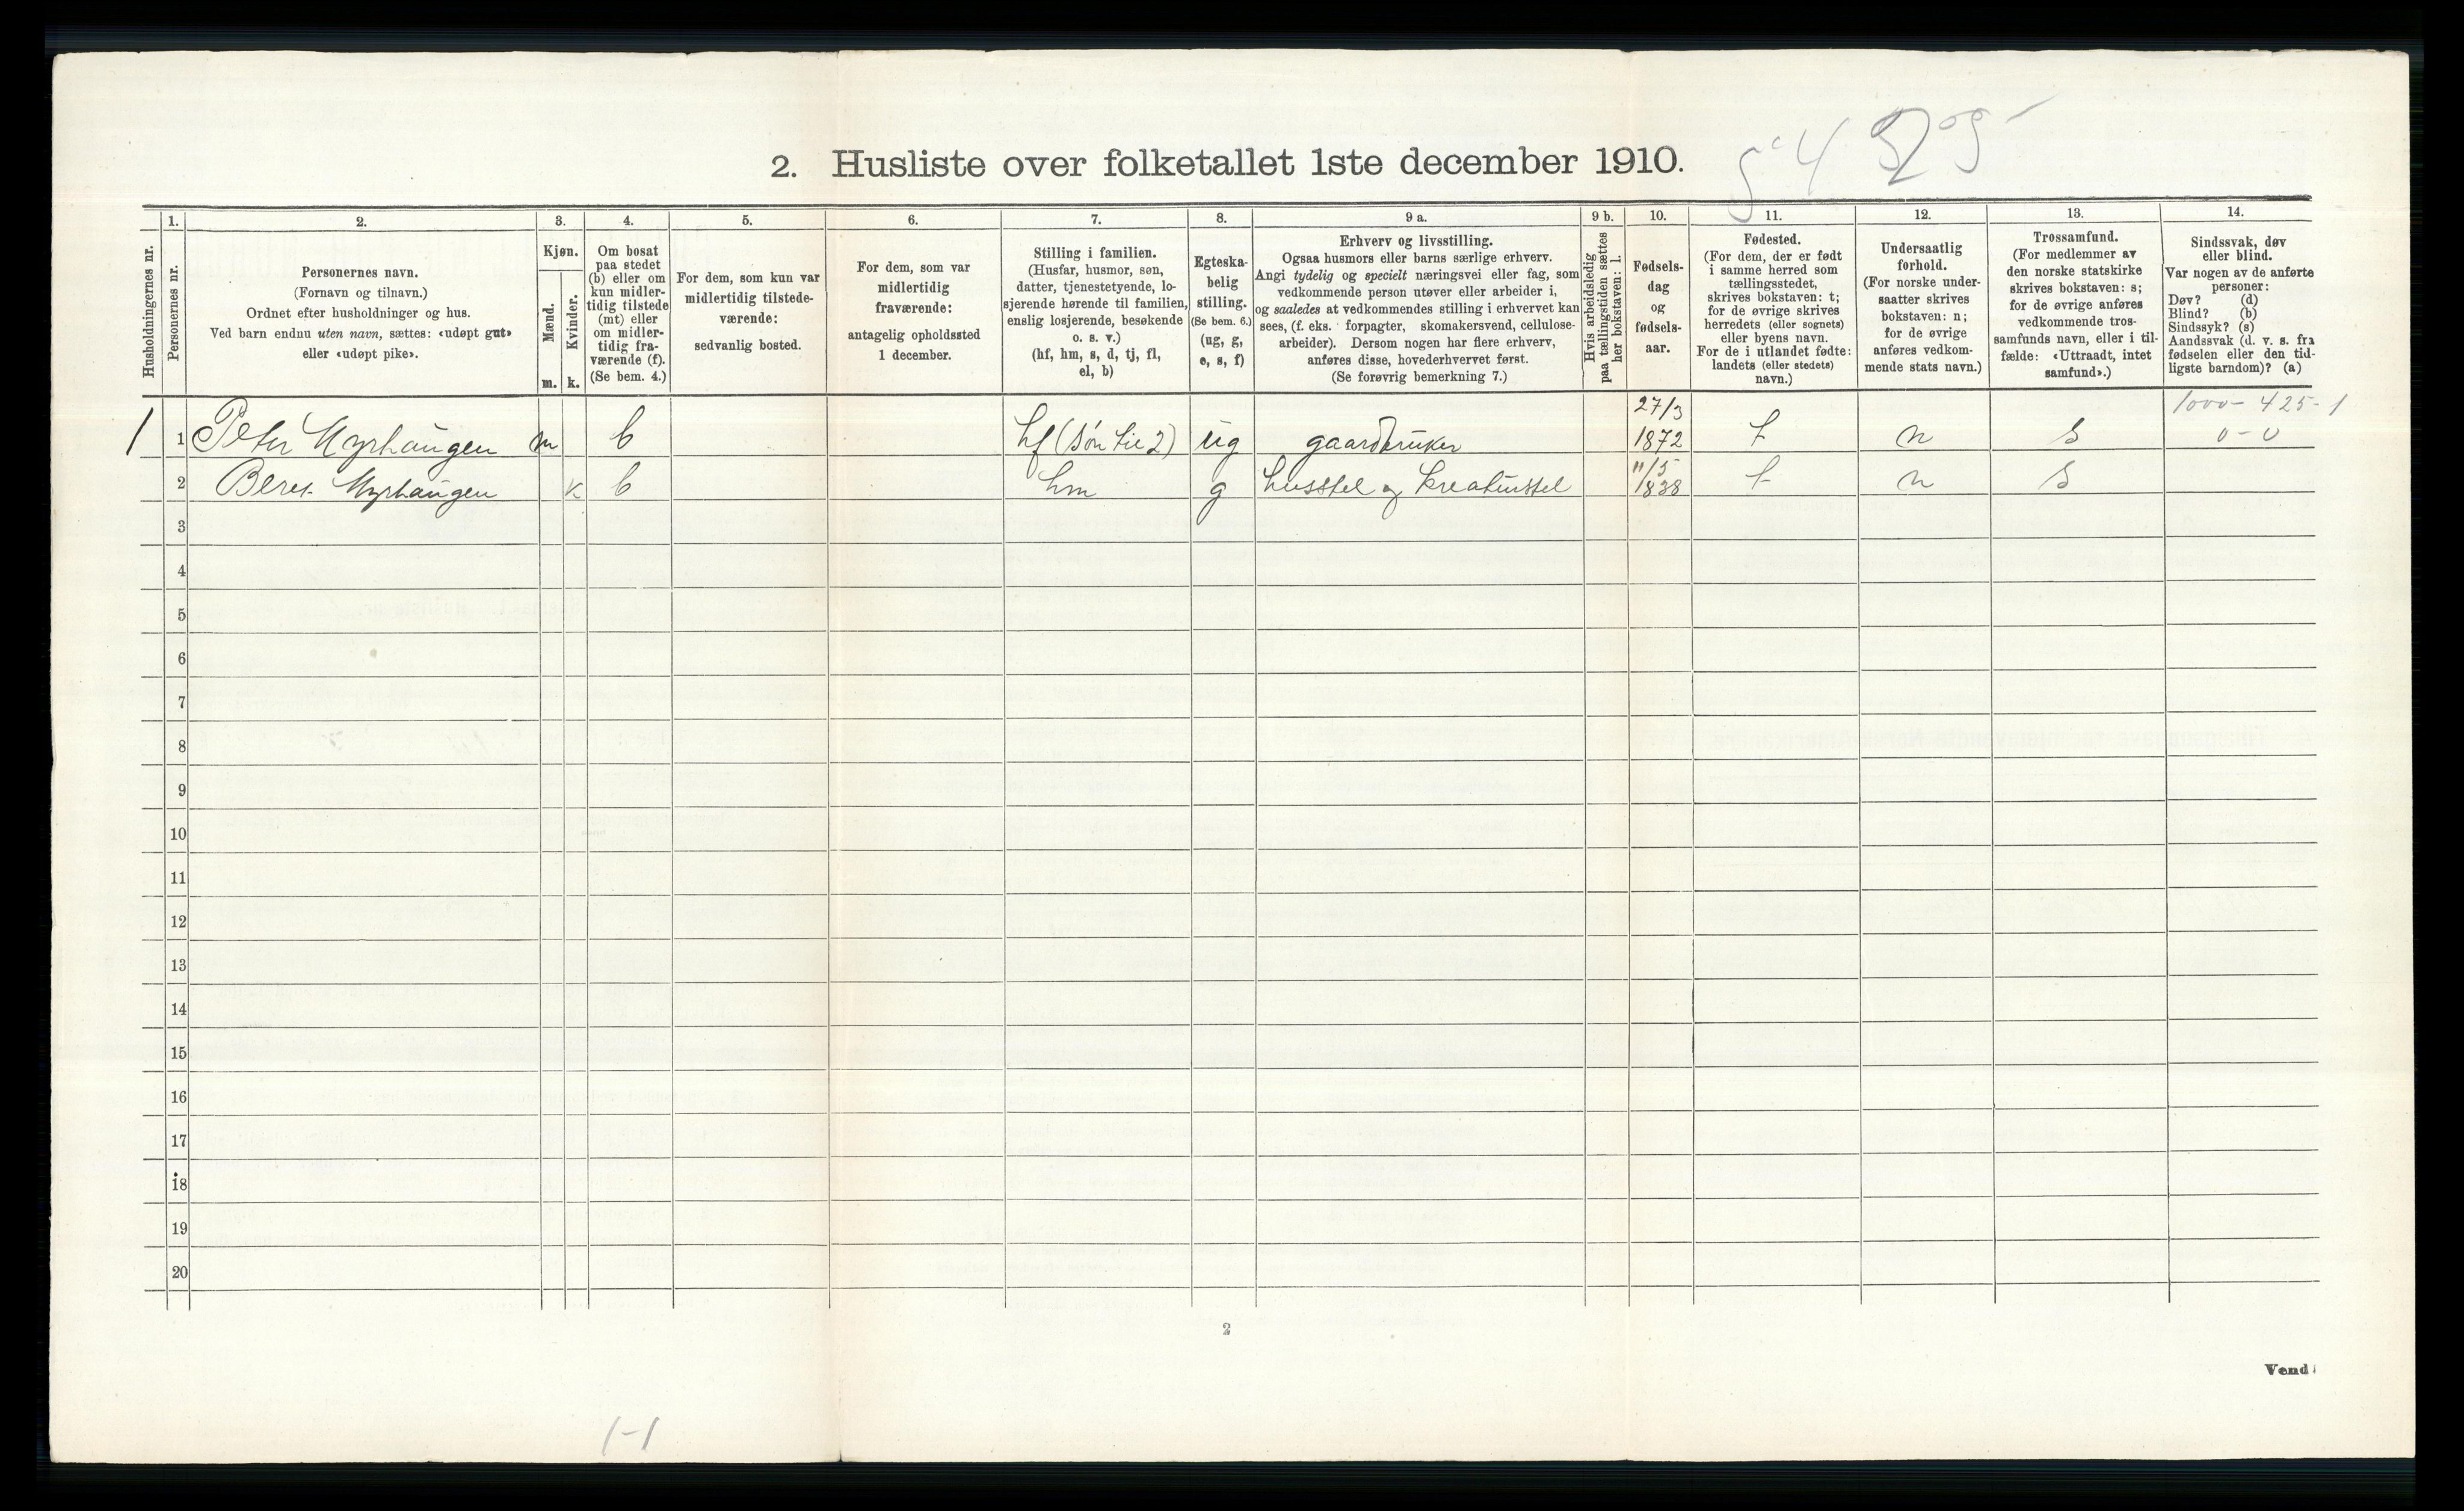 2. Husliste over folketallet 1ste december 1910.
Husholdningernes nr.
1.
Personernes nr.
2.
Personernes navn.
(Fornavn og tilnavn.)
Ordnet efter husholdninger og hus.
Ved barn endnu uten navn, sættes: «udøpt gut»
eller «udøpt pike».
3.
Kjøn.
Mænd.
Kvinder.
m. k.
4.
Om bosat
paa stedet
(b) eller om
kun midler-
tidig tilstede
(mt) eller
om midler-
tidig fra-
værende (f).
(Se bem. 4.)
5.
For dem, som kun var
midlertidig tilstede-
værende:
sedvanlig bosted.
6.
For dem, som var
midlertidig
fraværende:
antagelig opholdssted
1 december.
7.
Stilling i familien.
(Husfar, husmor, søn,
datter, tjenestetyende, lo-
sjerende hørende til familien,
enslig losjerende, besøkende
o. s. v.)
(hf, hm, s, d, tj, fl,
el, b)
8.
Egteska-
belig
stilling.
(Se bem. 6.)
(ug, g,
e, s, f)
9 a.
Erhverv og livsstilling.
Ogsaa husmors eller barns særlige erhverv.
Angi tydelig og specielt næringsvei eller fag, som
vedkommende person utøver eller arbeider i,
og saaledes at vedkommendes stilling i erhvervet kan
sees, (f. eks. forpagter, skomakersvend, cellulose-
arbeider). Dersom nogen har flere erhverv,
anføres disse, hovederhvervet først.
(Se forøvrig bemerkning 7.)
9 b.
Hvis arbeidsledig
paa tællingstiden sættes
her bokstaven: l.
10.
Fødsels-
dag
og
fødsels-
aar.
11.
Fødested.
(For dem, der er født
i samme herred som
tællingsstedet,
skrives bokstaven: t;
for de øvrige skrives
herredets (eller sognets)
eller byens navn.
For de i utlandet fødte:
landets (eller stedets)
navn.)
12.
Undersaatlig
forhold.
(For norske under-
saatter skrives
bokstaven: n;
for de øvrige
anføres vedkom-
mende stats navn.)
13.
Trossamfund.
(For medlemmer av
den norske statskirke
skrives bokstaven: s;
for de øvrige anføres
vedkommende tros-
samfunds navn, eller i til-
fælde: «Uttraadt, intet
samfund».)
14.
Sindssvak, døv
eller blind.
Var nogen av de anførte
personer:
Døv? (d)
Blind? (b)
Sindssyk? (s)
Aandssvak (d. v. s. fra
fødselen eller den tid-
ligste barndom)? (a)
1000 - 425 - 1
0 - 0
1 1 Peter Myrhaugen m b hf (søn til 2) ug gaardbruker 27/3 1872 t n s
2 Beret Myrhaugen k b hm g husstel og kreaturstel 11/5 1838 t n s
3
4
5
6
7
8
9
10
11
12
13
14
15
16
17
18
19
20
2
Vend
1-1